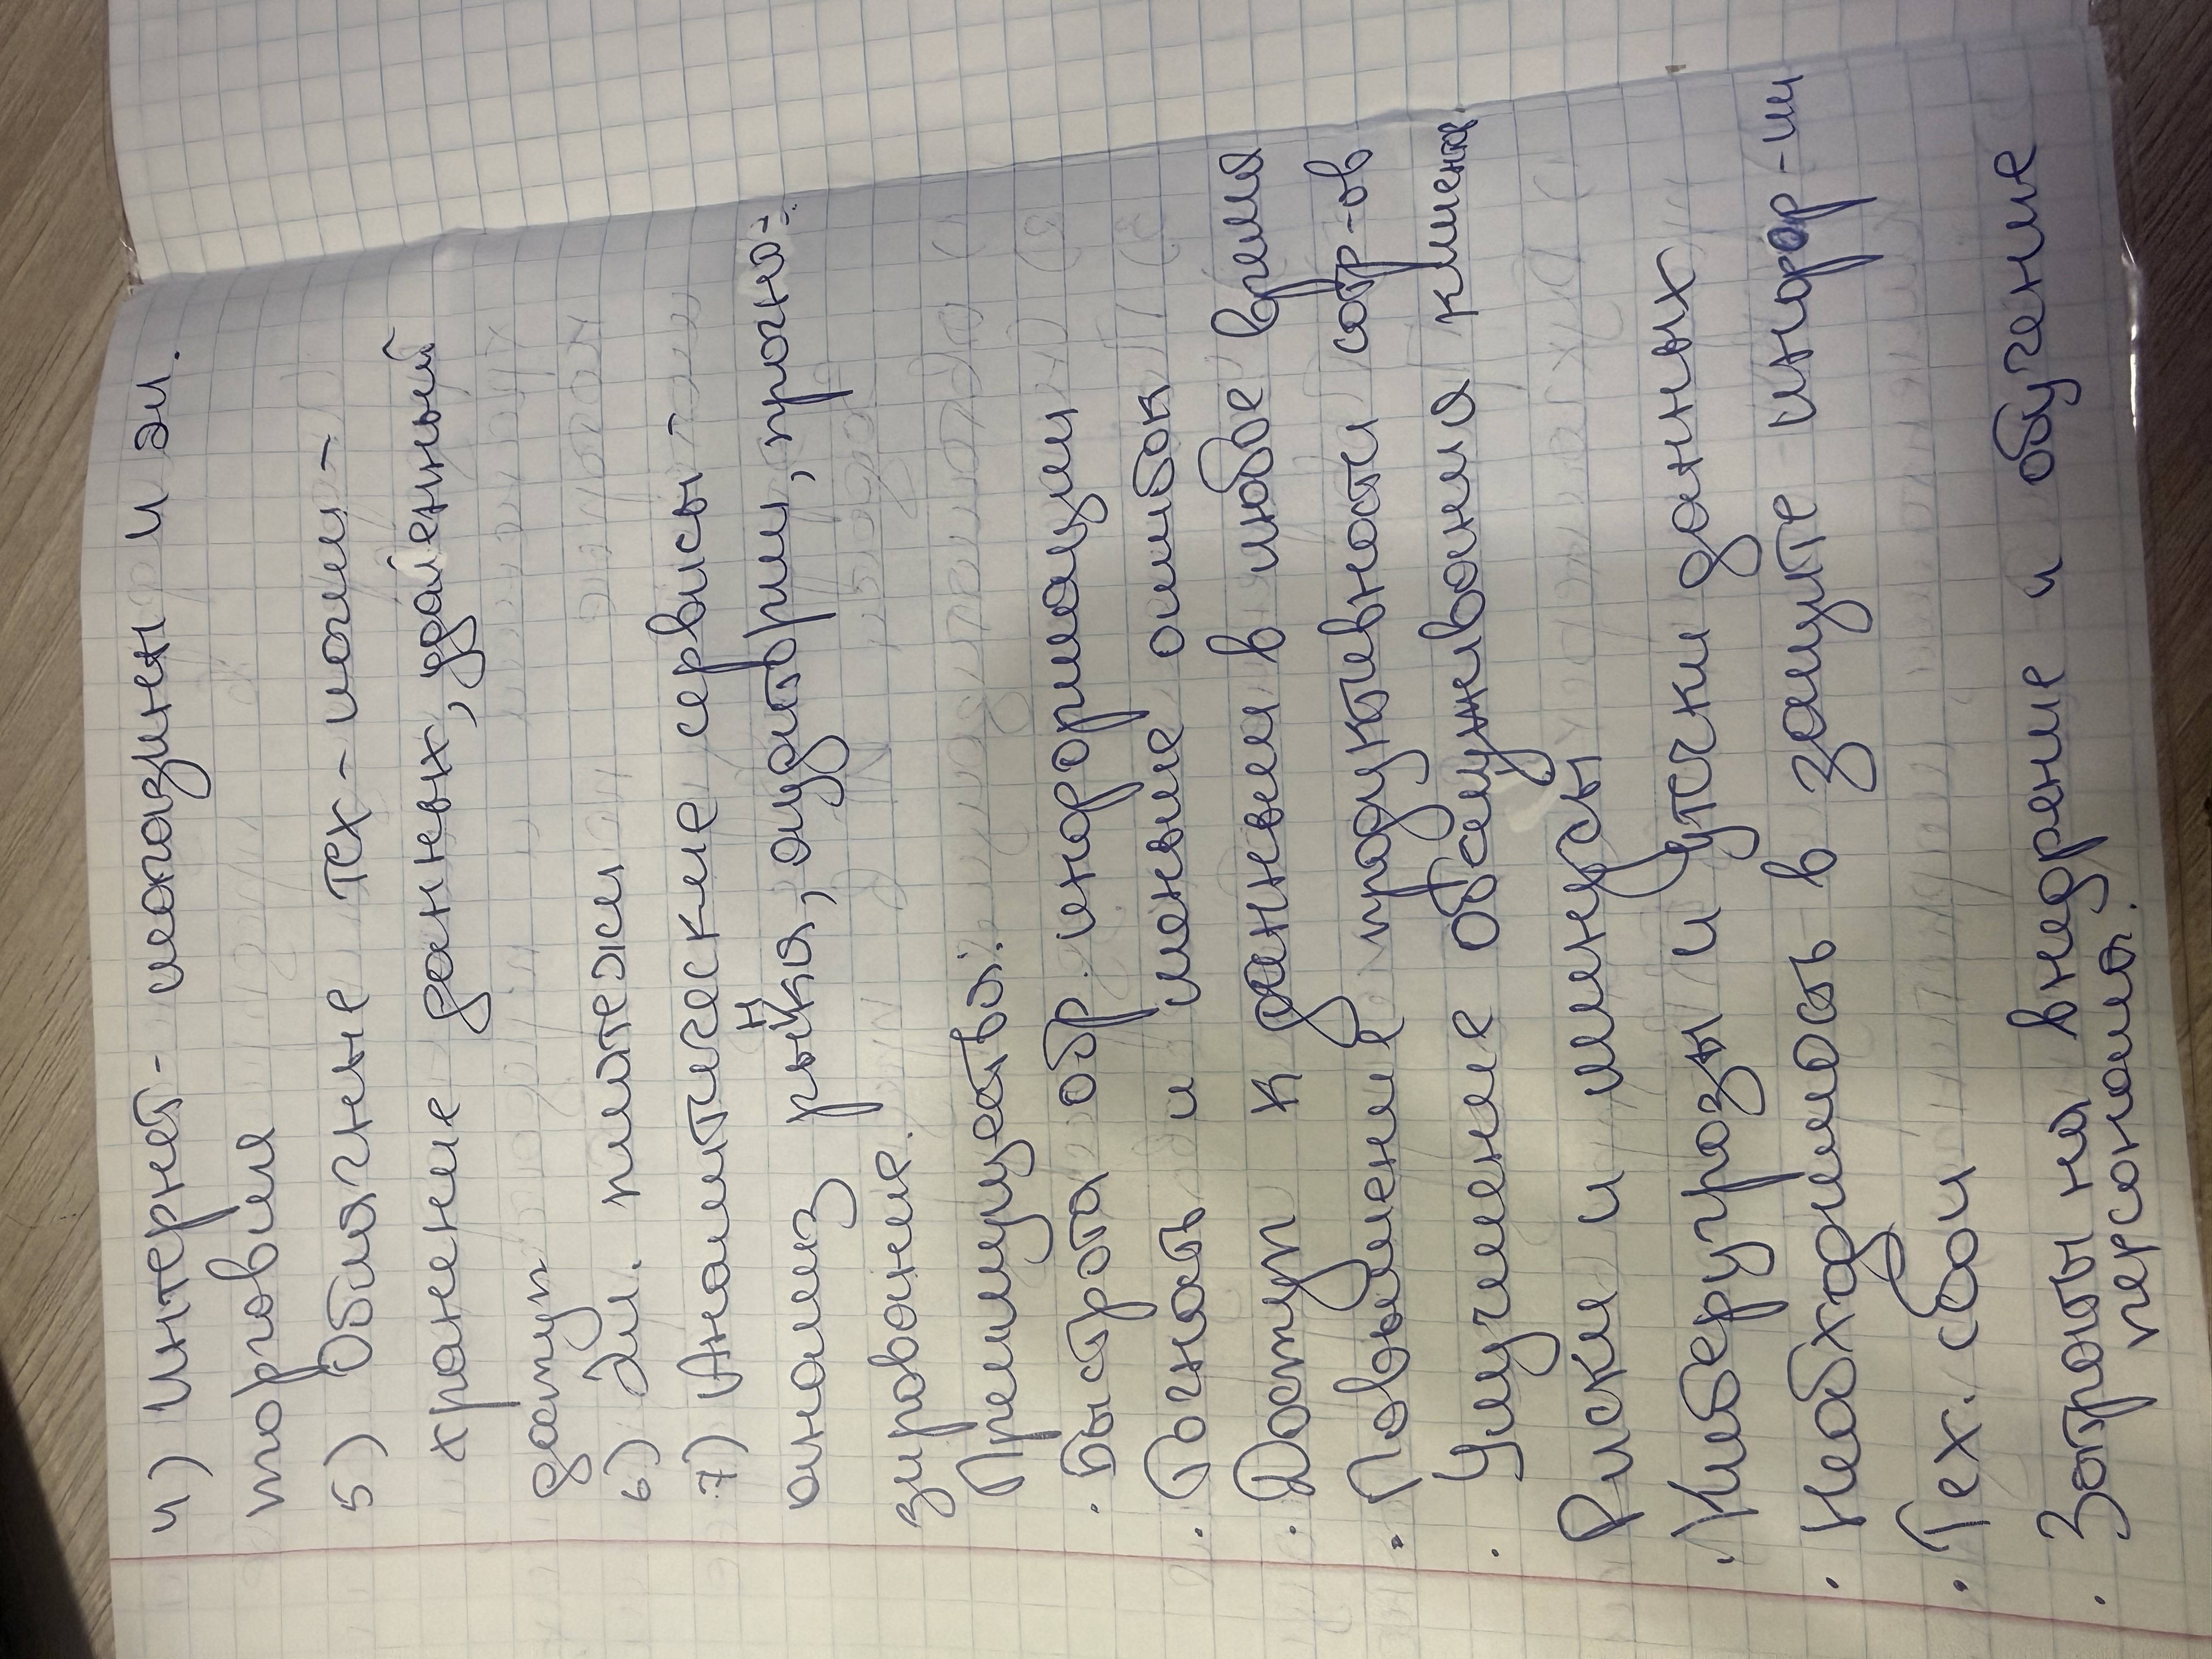 4) Интернет-магазины и эл.
торговля
5) Облачные тех-логии -
хранение данных, удаленный
доступ
6) Эл. платежи
7) Аналитические сервисы -
анализ рынка, аудитории, прогно-
зирование.
Преимущества:
· Быстрота обр. информации
· Точность и меньше ошибок
· Доступ к данным в любое время
· Повышение продуктивности сотр-ов
· Улучшение обслуживания клиентов.
Риски и минусы
· Киберугрозы и утечки данных
· Необходимость в защите инфор-ии
· Тех. сбои
· Затраты на внедрение и обучение
персонала.